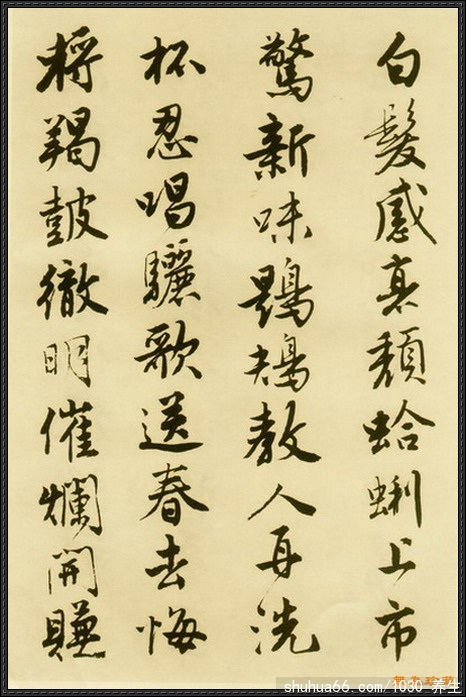 白髮感衰頹蛤蜊上市
驚新味鶗鴂教人再洗
杯忍唱驪歌送春去悔
將羯鼓徹明催爛開賺
shuhua66.com/1030-养生